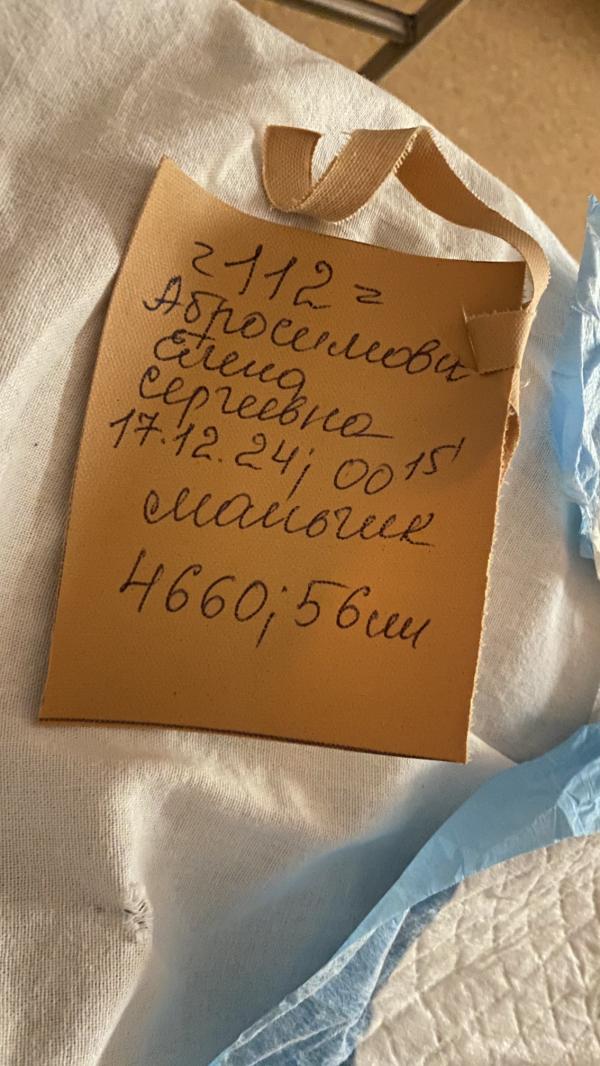 ~112~
Абросимова
Елена
Сергеевна
17.12.24; 00 15'
мальчик
4660; 56см